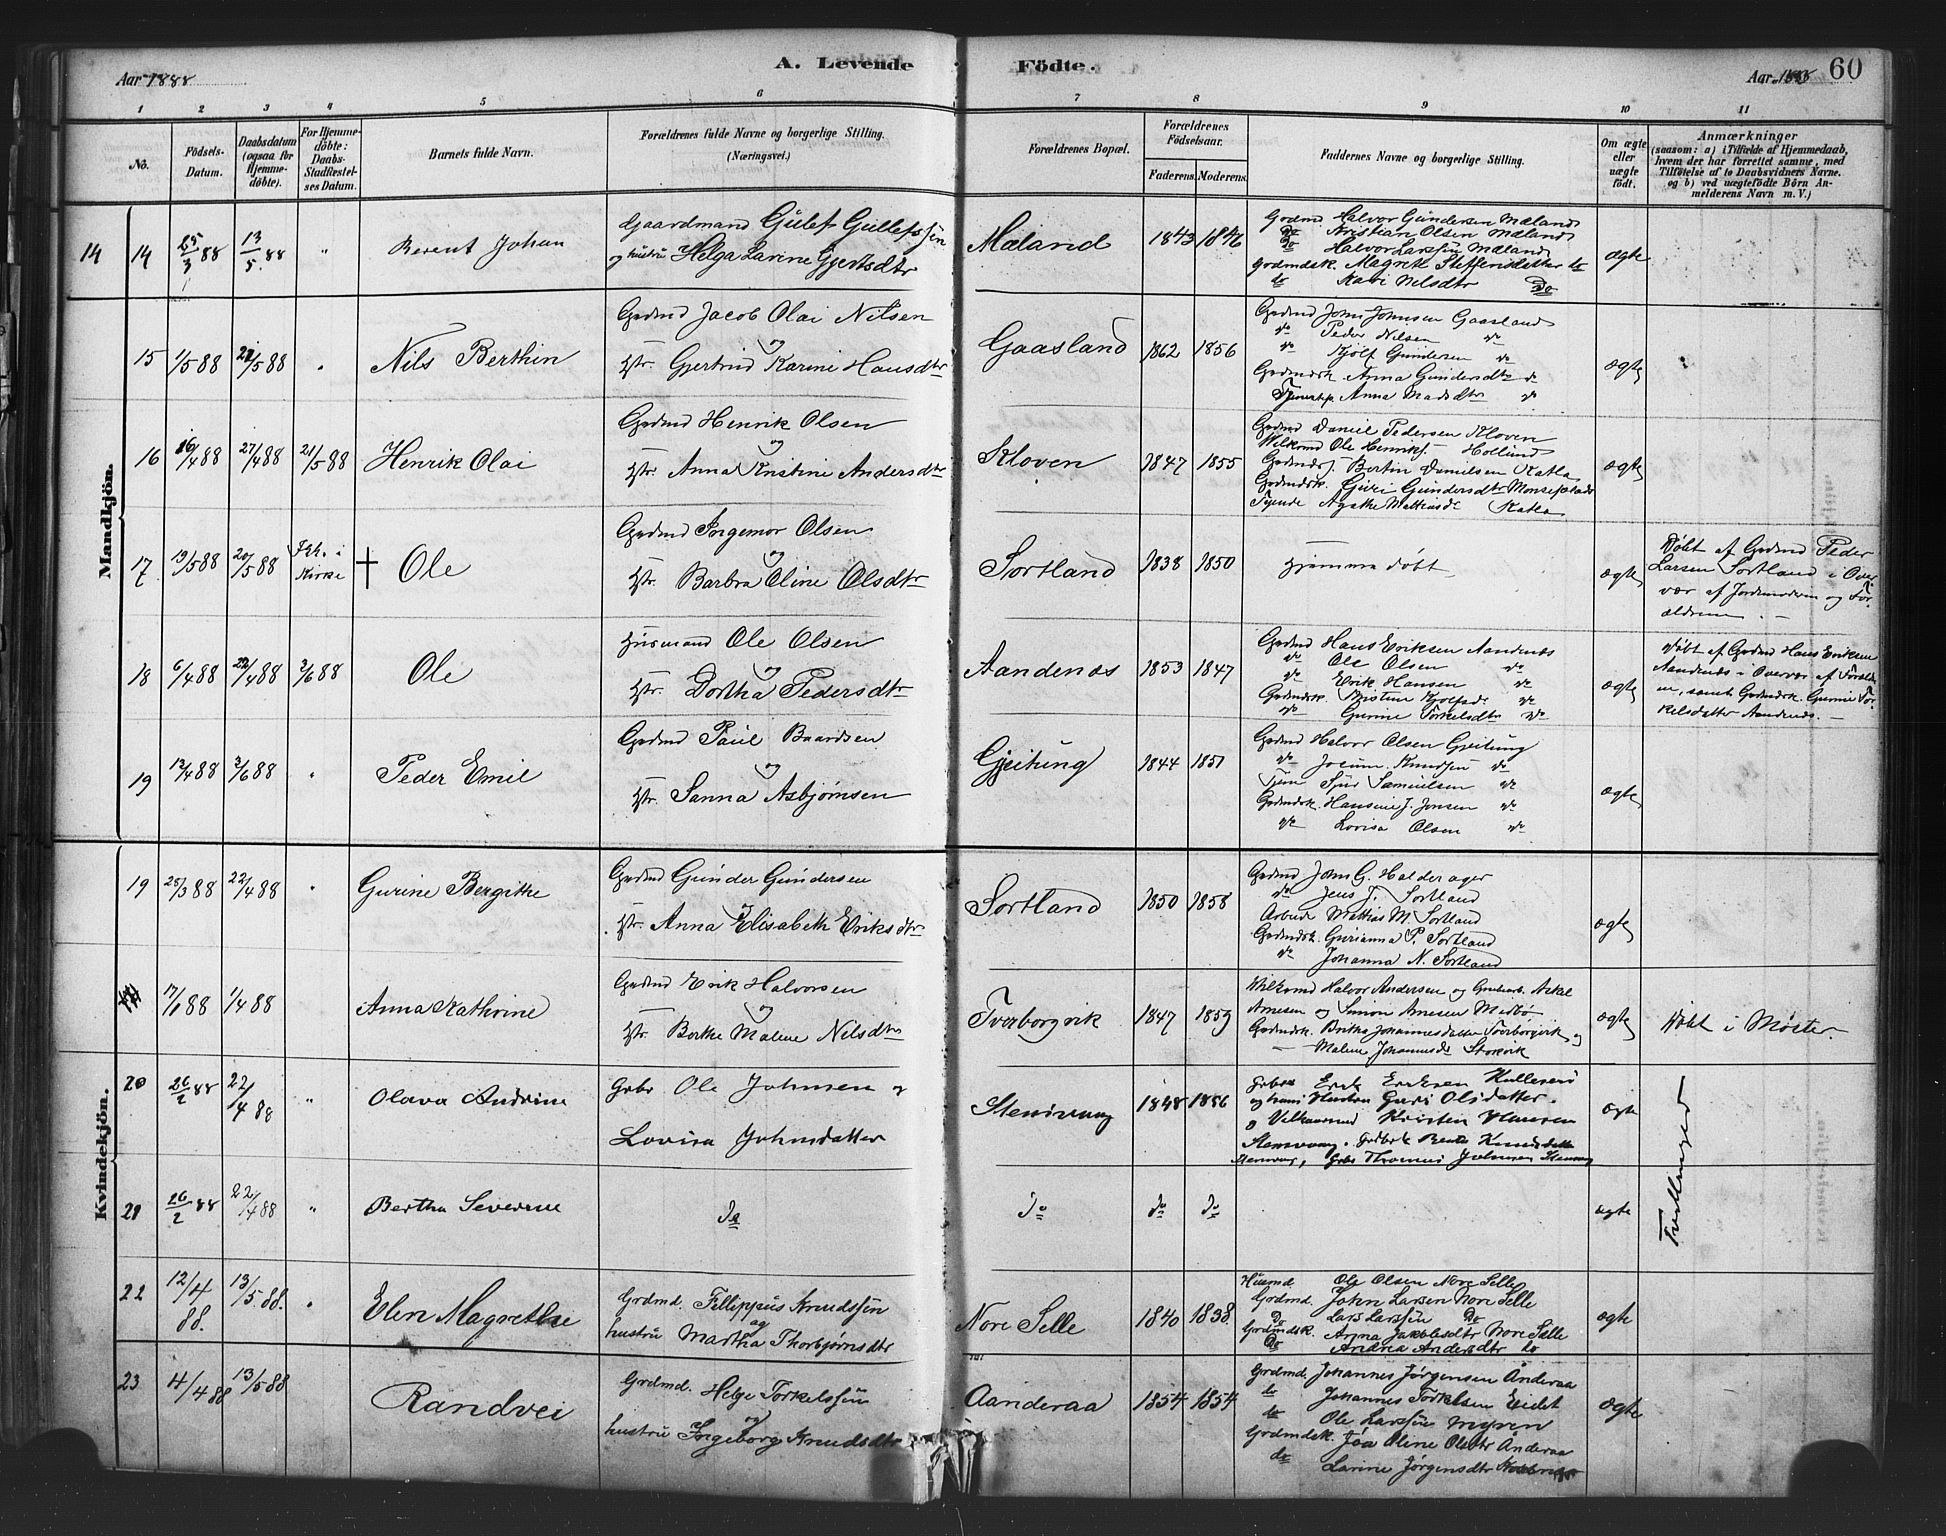 Aar 1888
A. Levende
Födte.
Aar 1888
60
1 2 3 4 5 6 7 8 9 10 11
No.
Födsels-
Datum.
Daabsdatum
(ogsaa for
Hjemme-
døbte).
For Hjemme-
döbte:
Daabs-
Stadfæstel-
ses Datum.
Barnets fulde Navn.
Forældrenes fulde Navne og borgerlige Stilling.
(Næringsvei.)
Forældrenes Bopæl.
Forældrenes
Födselsaar.
Faderens. Moderens.
Faddernes Navne og borgerlige Stilling.
Om ægte
eller
uægte
født.
Anmærkninger
(saasom: a) i Tilfælde af Hjemmedaab,
hvem der har forrettet samme, med
Tilføielse af to Daabsvidners Navne.
og b) ved uægtefödte Börn An-
melderens Navn m. V.)
Mandkjön.
14 14 25/3 88 13/5 88 " Berent Johan
Gaardmand Gulef Gullefssön
og hustru Helga Larine Gjertsdtr
Mæland 1843 1846
Grdmd Halvor Gundersen Mæland
Do Kristian Olsen Mæland
Do Halvor Larssön Mæland
Grdmdsk. Magrete Steffensdatter do
do Kari Nelsdtr Do
ægte
15 1/5 88 21/5 88 " Nils Berthin
Grdmd Jacob Olai Nilsen
og
Hstr. Gjertrud Karine Hansdtr
Gaasland 1862 1856
Grdmd John Johnsen Gaasland
do Peder Nilsen do
do Kjölf Gundersen do
Grdmdsk Anna Gundersdtr do
Anna Madsdtr do
ægte
16 16/4 88 27/4 88 21/5 88 Henrik Olai
Grdmd Henrik Olsen
og
Hstr. Anna Kristine Andersdtr
Kloven 1847 1855
Grdmd Daniel Pedersen Kloven
Ole Henriks. Hollund
Bertin Danielsen Katla
Grdmdsk. Guri Gundersdtr
Tjende Agathe Katla
ægte
17 19/5 88 20/5 88 i
Kirke † Ole
Grdmd Ingemor Olsen
og
Hstr. Barbra Oline Olsdtr
Sortland 1838 1850
Hjemmedöbt
ægte
Döbt af Grdmd Peder
Larsen Sortland i Over
vær af Jordemoderen og For
ældrene. —
18 6/4 88 22/4 88 3/6 88 Ole
Husmand Ole Olsen
og
Hstr. Dortha Pedersdtr
Aandenæs 1853 1847
Grdmd Hans Eriksen Aandenæs
do Ole Olsen do
do Erik Hansen do
Grdmdsk. Kristine do
do Gurine Torkelsdtr do
ægte
Döbt af Grdmd Hans Eriksen
Aandenæs i Overvær af Foræld
ne, samt Grdmdsk. Gurine Tor
kelsdatter Aandenæs. —
19 13/4 88 3/6 88 " Peder Emil
Grdmd Paul Baardsen
og
Hstr. Sanna Asbjørnsen
Gjeitung 1844 1851
Grdmd Halvor Olsen Gjeitung
do Jocum Knudsen do
Sjur Samuelsen do
Grdmdsk. Hansine J. Jonsen do
do Lovisa Olsen do
ægte
Kvindekjön.
19 25/3 88 22/4 88 " Gurine Bergitte
Grdmd Gunder Gundersen
Hstr. Anna Elisabeth Eriksdtr
Sortland 1850 1858
Grdmd John G. Halderager
do Jens J. Sortland
Mattias M. Sortland
Grdmdsk. Gurianna P. Sortland
do Johanna N. Sortland
ægte
17/1 88 1/4 88 Anna Kathrine
Grdmd Erik Halvorsen
og
Hstr. Berthe Malene Nilsdtr
Tverborgvik 1847 1859
Halvor Andersen og Askel
Arnesen og Simon Arnesen Medbø
Grdmdsk. Britha Johannesdatter Tverborgvik og
— Malene Johannesdr Stokvik
ægte
Döbt i Møster.
20 26/2 88 22/4 88 " Olava Andrine
Grbr Ole Johnsen og
Lovisa Johnsdatter
Stensvaag 1848 1886
Grbr Erik Eriksen Kulleseid
og hans Hustru Guri Olsdatter.
Kristen Hansen
Stensvaag. Knudsdatter
Stensvaag, Grbr Thomas Johnsen Stensvaag
ægte
Tvillinger
21 26/2 88 22/4 88 " Bertha Severine
do
do do do
ægte
22 12/4 88. 13/5 88. " Elen Magrethe
Grdmd. Fillippus Knudssön
og
hustru Martha Thorbjørnsdtr
Nore Selle 1840 1838
Husmd. Ole Olsen Nore Selle
Grdmd. John Larsen Nore Selle
Do Lars Larssön Do
Grdmdsk. Anna Jakobsdtr Nore Selle
Do Andrea Andersdtr do
ægte
23 4/4 88 13/5 88 Randvei
Grdmd. Helge Torkelssön
og
hustru Ingeborg Knudsdtr
Aanderaa 1854 1854
Grdmd. Johannes Jørgensen Anderaa
do Johannes Torkelsen Eidet
do Ole Larssön Myren
Grdmdsk. Oline Olsdtr Anderaa
do Larine Jørgensdtr
ægte